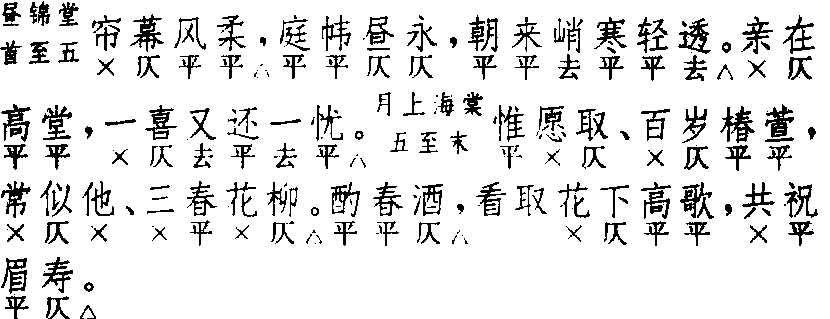 昼锦堂
首至五
帘幕风柔，庭帏昼永，朝来峭寒轻透。亲在
×仄平平△平平仄仄平平去平平去△×仄
高堂，一喜又还一忧。月上海棠 五至末 惟愿取、百岁椿萱，
平平×仄去平去平△平×仄×仄平平
常似他、三春花柳。酌春酒，看取花下高歌，共祝
×仄××平×仄△平平仄△×仄平平×平
眉寿。
平仄△